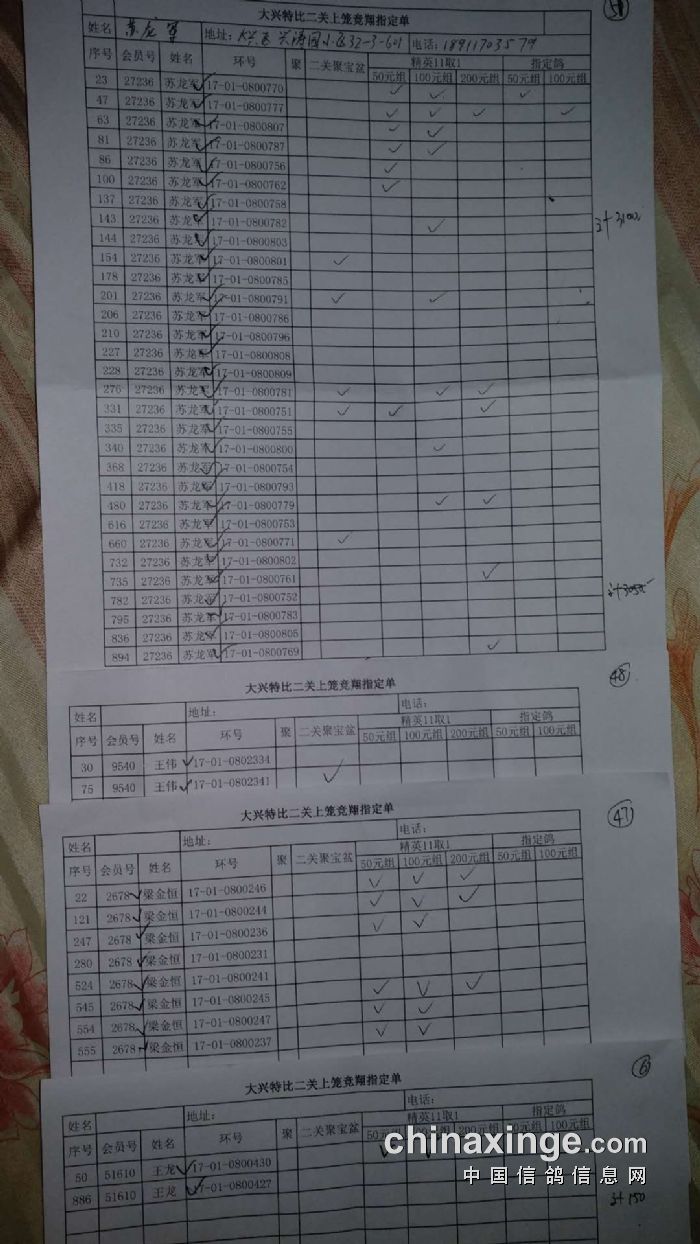 大兴特比二关上笼竞翔指定单
姓名 苏龙军 地址: 大兴区兴涛园小区32-3-601 电话: 18911703579
序号 会员号 姓名 环号 聚 二关聚宝盆 精英11取1 指定鸽
50元组 100元组 200元组 50元组 100元组
23 27236 苏龙军 17-01-0800770 ✓ ✓ ✓
47 27236 苏龙军 17-01-0800777 ✓ ✓ ✓ ✓
63 27236 苏龙军 17-01-0800807 ✓ ✓
81 27236 苏龙军 17-01-0800787 ✓ ✓
86 27236 苏龙军 17-01-0800756 ✓
100 27236 苏龙军 17-01-0800762 ✓
137 27236 苏龙军 17-01-0800758
143 27236 苏龙军 17-01-0800782 ✓
144 27236 苏龙军 17-01-0800803
154 27236 苏龙军 17-01-0800801 ✓
178 27236 苏龙军 17-01-0800785
201 27236 苏龙军 17-01-0800791 ✓ ✓
206 27236 苏龙军 17-01-0800786
210 27236 苏龙军 17-01-0800796
227 27236 苏龙军 17-01-0800808
228 27236 苏龙军 17-01-0800809
276 27236 苏龙军 17-01-0800781 ✓ ✓ ✓
331 27236 苏龙军 17-01-0800751 ✓ ✓ ✓
335 27236 苏龙军 17-01-0800755
340 27236 苏龙军 17-01-0800800 ✓
368 27236 苏龙军 17-01-0800754
418 27236 苏龙军 17-01-0800793
480 27236 苏龙军 17-01-0800779 ✓ ✓
616 27236 苏龙军 17-01-0800753
660 27236 苏龙军 17-01-0800771 ✓
732 27236 苏龙军 17-01-0800802
735 27236 苏龙军 17-01-0800761 ✓
782 27236 苏龙军 17-01-0800752
795 27236 苏龙军 17-01-0800783
836 27236 苏龙军 17-01-0800805
894 27236 苏龙军 17-01-0800769 ✓
大兴特比二关上笼竞翔指定单 48
姓名 地址: 电话:
序号 会员号 姓名 环号 聚 二关聚宝盆 精英11取1 指定鸽
50元组 100元组 200元组 50元组 100元组
30 9540 王伟 17-01-0802334
75 9540 王伟 17-01-0802341 ✓
大兴特比二关上笼竞翔指定单 47
姓名 地址: 电话:
序号 会员号 姓名 环号 聚 二关聚宝盆 精英11取1 指定鸽
50元组 100元组 200元组 50元组 100元组
22 2678 梁金恒 17-01-0800246 ✓ ✓ ✓
121 2678 梁金恒 17-01-0800244 ✓ ✓ ✓
247 2678 梁金恒 17-01-0800236 ✓ ✓
280 2678 梁金恒 17-01-0800231
524 2678 梁金恒 17-01-0800241
545 2678 梁金恒 17-01-0800245 ✓ ✓ ✓
554 2678 梁金恒 17-01-0800247 ✓ ✓
555 2678 梁金恒 17-01-0800237 ✓ ✓
大兴特比二关上笼竞翔指定单
姓名 地址: 电话:
序号 会员号 姓名 环号 聚 二关聚宝盆 精英11取1 指定鸽
50元组 200元组 50元组 100元组
50 51610 王龙 17-01-0800430 ✓ ✓
886 51610 王龙 17-01-0800427
计150
chinaxinge.com
中国信鸽信息网